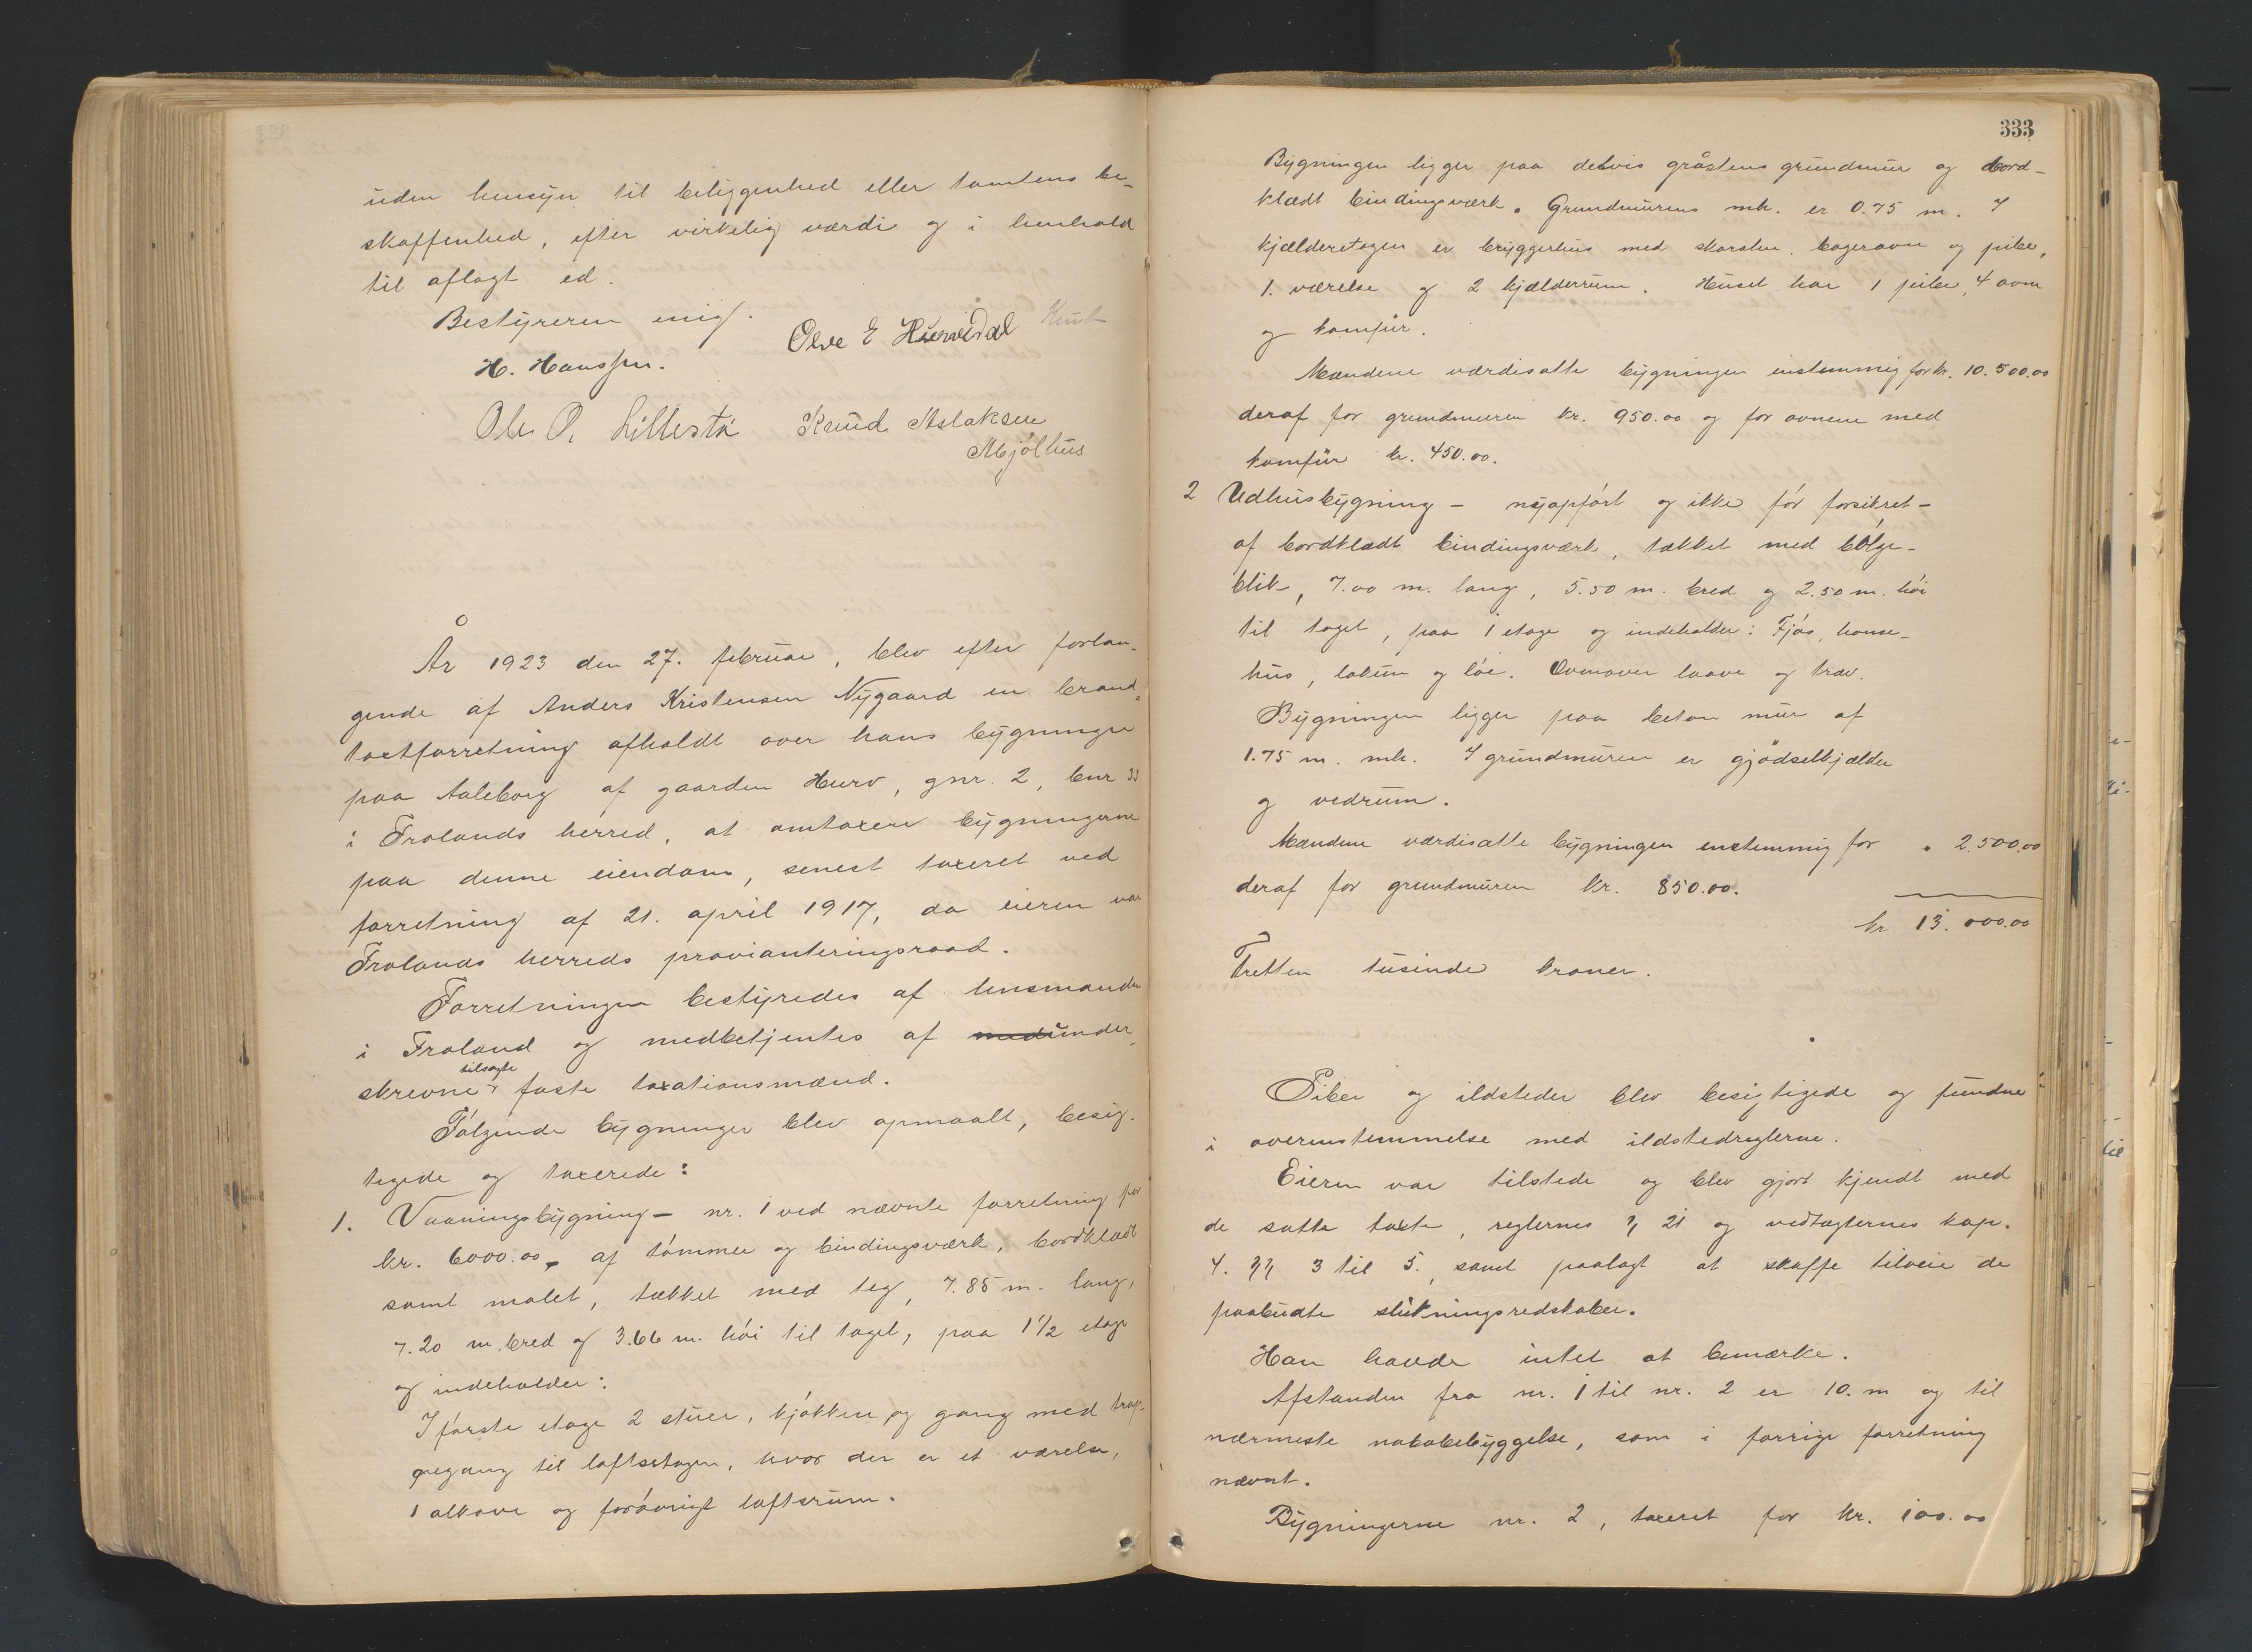 uden hensyn til beliggenhed eller tomtens be-
skaffenhed, efter virkelig værdi og i henhold
til aflagt ed.
Bestyreren enig.
H. Hanssen.
Olve E Hurvedal Knut
Ole O. Lillestø Knud Aslaksen
Mjølhus
År 1923 den 27. februar, blev efter forlan-
gende af Anders Kristensen Nygaard en brand-
taxtforretning afholdt over hans bygninger
paa Aaleborg af gaarden Hurv, gnr. 2, bnr 33
i Frolands herred, at omtaxere bygningerne
paa denne eiendom, senest taxeret ved
forretning af 21. april 1917, da eieren var
Frolands herreds provianteringsraad.
Forretningen bestyredes af lensmanden
i Froland og medbetjentes af under-
skrevne tilsagte faste taxationsmænd.
Følgende bygninger blev opmaalt, besig-
tigede og taxerede:
1. Vaaningsbygning - nr. 1 ved nævnte forretning for
kr. 6000.00, af tømmer og bindingsværk, bordklædt
samt malet, tækket med teg, 7.85 m. lang,
7.20 m. bred og 3.66 m. høi til taget, paa 1 1/2 etage
og indeholder:
I første etage 2 stuer, kjøkken og gang med trap-
pegang til loftsetagen, hvor der er et værelse,
1 alkove og forøvrigt loftsrum.
333
Bygningen ligger paa delvis gråstens grundmur og bord-
klædt bindingsværk. Grundmurens mh. er 0.75 m. I
kjælderetagen er bryggerhus med skorsten, bagerovn og pibe,
1. værelse og 2 kjælderrum. Huset har 1 pibe, 4 ovne
og komfür.
Mændene værdisatte bygningen enstemmig for kr. 10.500.00
deraf for grundmuren kr. 950.00 og for ovnene med
komfür kr. 450.00.
2 Udhusbygning - nyopført og ikke før forsikret -
af bordklædt bindingsværk, tækket med bølge-
blik, 7.00 m. lang, 5.50 m. bred og 2.50 m. høi
til taget, paa 1 etage og indeholder: Fjøs, hønse-
hus, lokum og løe. Ovenover laave og trev.
Bygningen ligger paa beton mur af
1.75 m. mh. I grundmuren er gjødselkjælder
og vedrum.
Mændene værdisatte bygningen enstemmig for " 2.500.00
deraf for grundmuren kr. 850.00.
kr 13.000.00
Tretten tusinde kroner.
Piber og ildsteder blev besigtigede og fundne
i overenstemmelse med ildstedreglerne.
Eieren var tilstede og blev gjort kjendt med
de satte taxte, reglernes § 21 og vedtægternes kap.
4. §§ 3 til 5., samt paalagt at skaffe tilveie de
paabudte slukningsredskaber.
Han havde intet at bemærke.
Afstanden fra nr. 1 til nr. 2 er 10. m og til
nærmeste nabobebyggelse, som i forrige forretning
nævnt.
Bygningerne nr. 2, taxeret for kr. 100.00